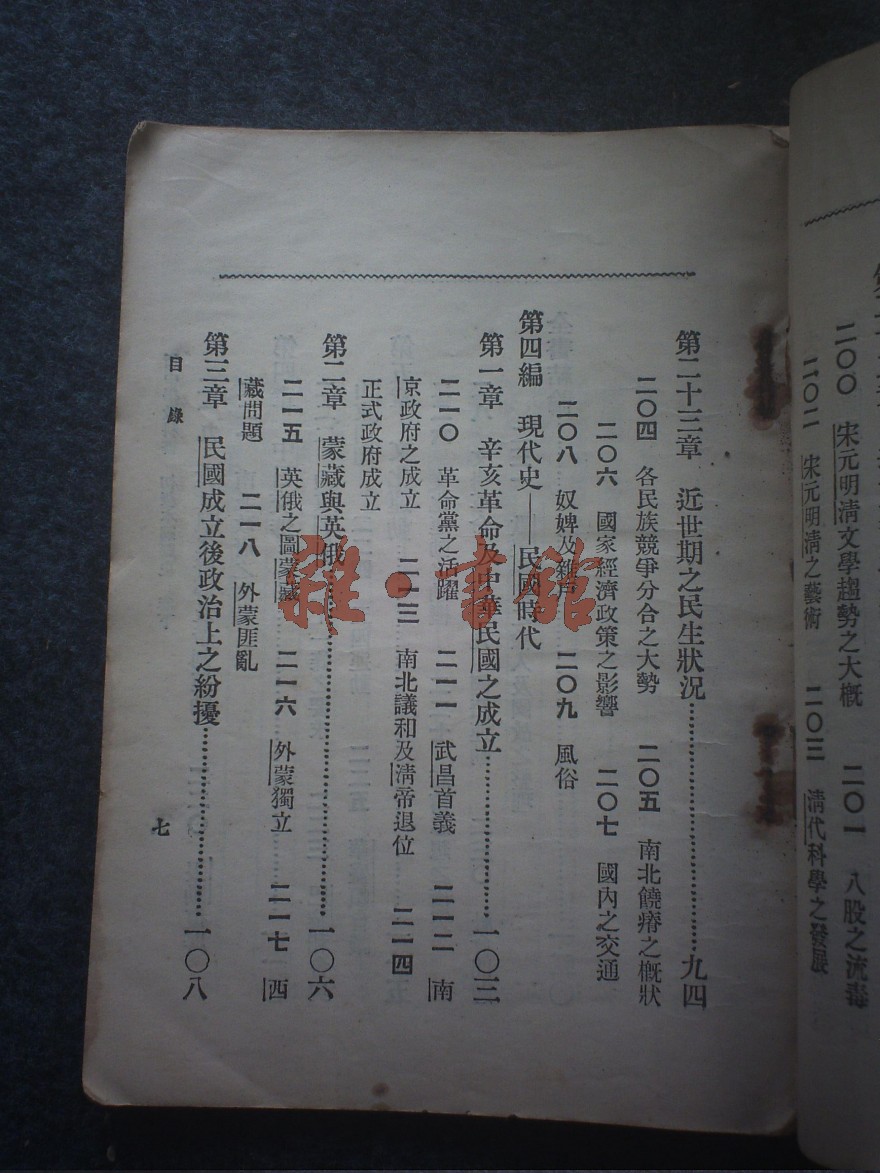 二〇〇　宋元明清文學趨勢之大槪　二〇一　八股之流毒
二〇二　宋元明清之藝術　二〇三　清代科學之發展
第二十三章　近世期之民生狀況…………………九四
二〇四　各民族競爭分合之大勢　二〇五　南北饒瘠之槪狀
二〇六　國家經濟政策之影響　二〇七　國內之交通
二〇八　奴婢及　二〇九　風俗
第四編　現代史——民國時代
第一章　辛亥革命及中華民國之成立…………………一〇三
二一〇　革命黨之活躍　二一一　武昌首義　二一二　南
京政府之成立　二一三　南北議和及淸帝退位　二一四
正式政府成立
第二章　蒙藏與英俄…………………一〇六
二一五　英俄之圖蒙藏　二一六　外蒙獨立　二一七　西
藏問題　二一八　外蒙匪亂
第三章　民國成立後政治上之紛擾…………………一〇八
目錄
七
雜·書館